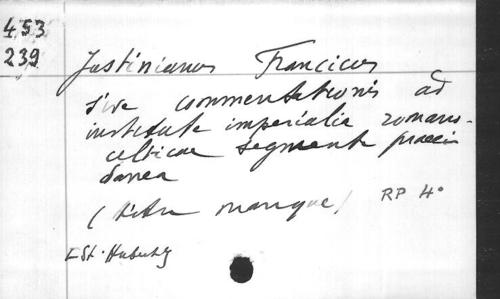 453
239
Justinianus Francicus
sive commentationis ad
instituta imperialia romano-
celticae segmenta praeci
danea
(titre manque)
RP 4°
[St. Hubert]